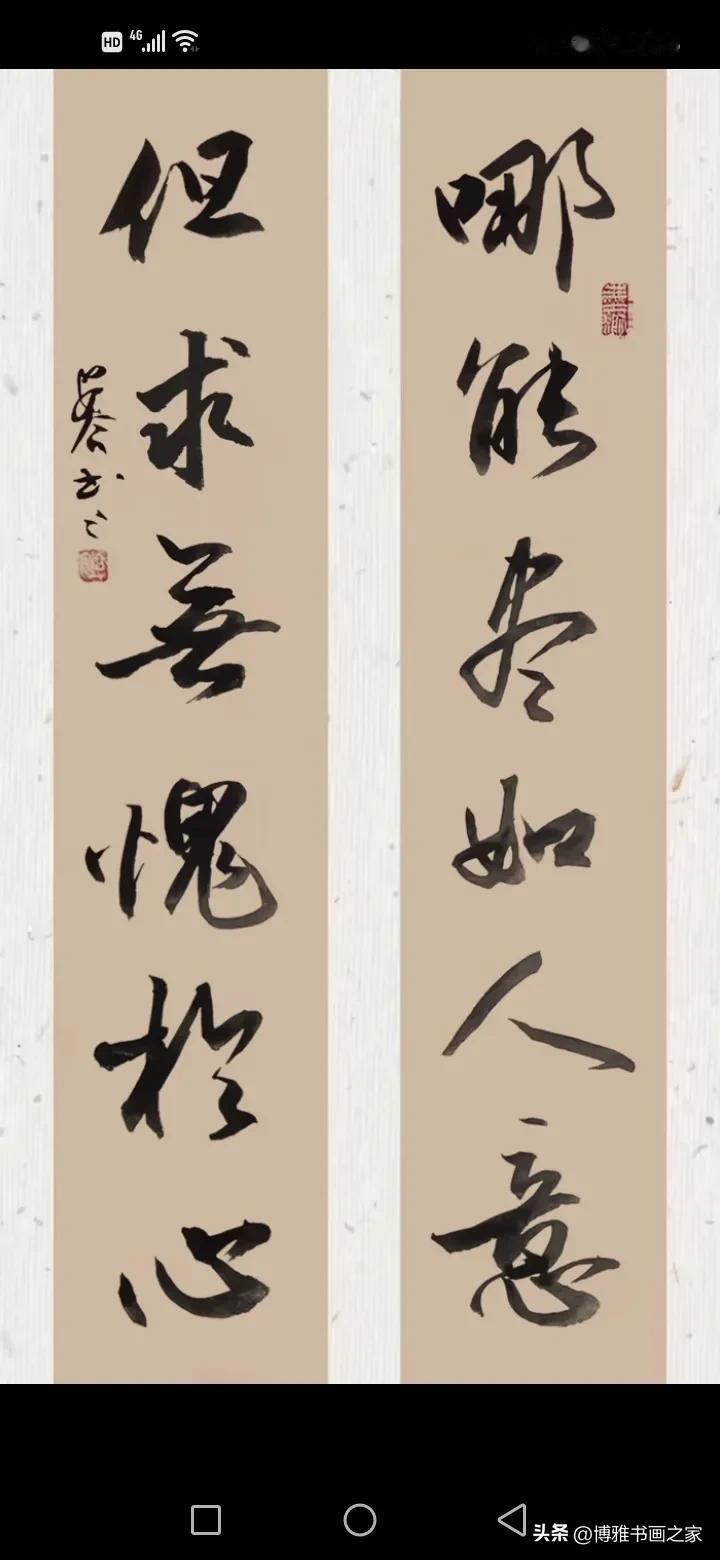 HD 4G
哪能尽如人意
但求無愧於心
书
头条 @博雅书画之家